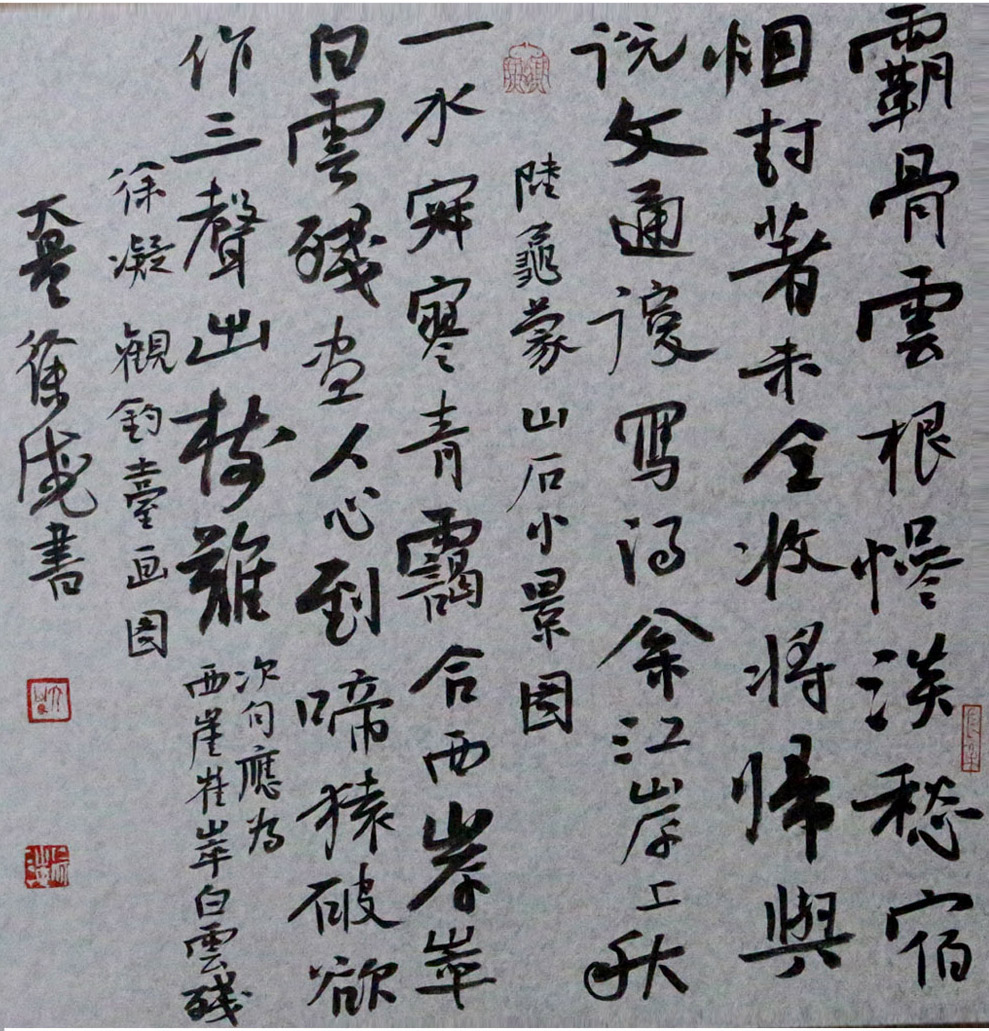 霸骨雲根慘淡愁宿
烟封著未全收將歸與
説文通寫得余江岸上秋
陸龜蒙 山石小景图
一水寂寒青靄合西岸崒
白雲殘画人心到啼猿破欲
作三聲出樹難
次句應为
西崖崔崒白雲殘
徐凝 觀釣臺画图
大量徐書